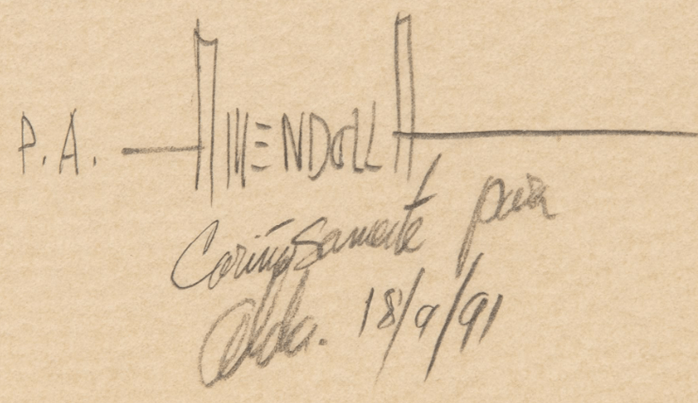 P.A. — AMENDOLLA
Cariñosamente para
Alda. 18/9/91